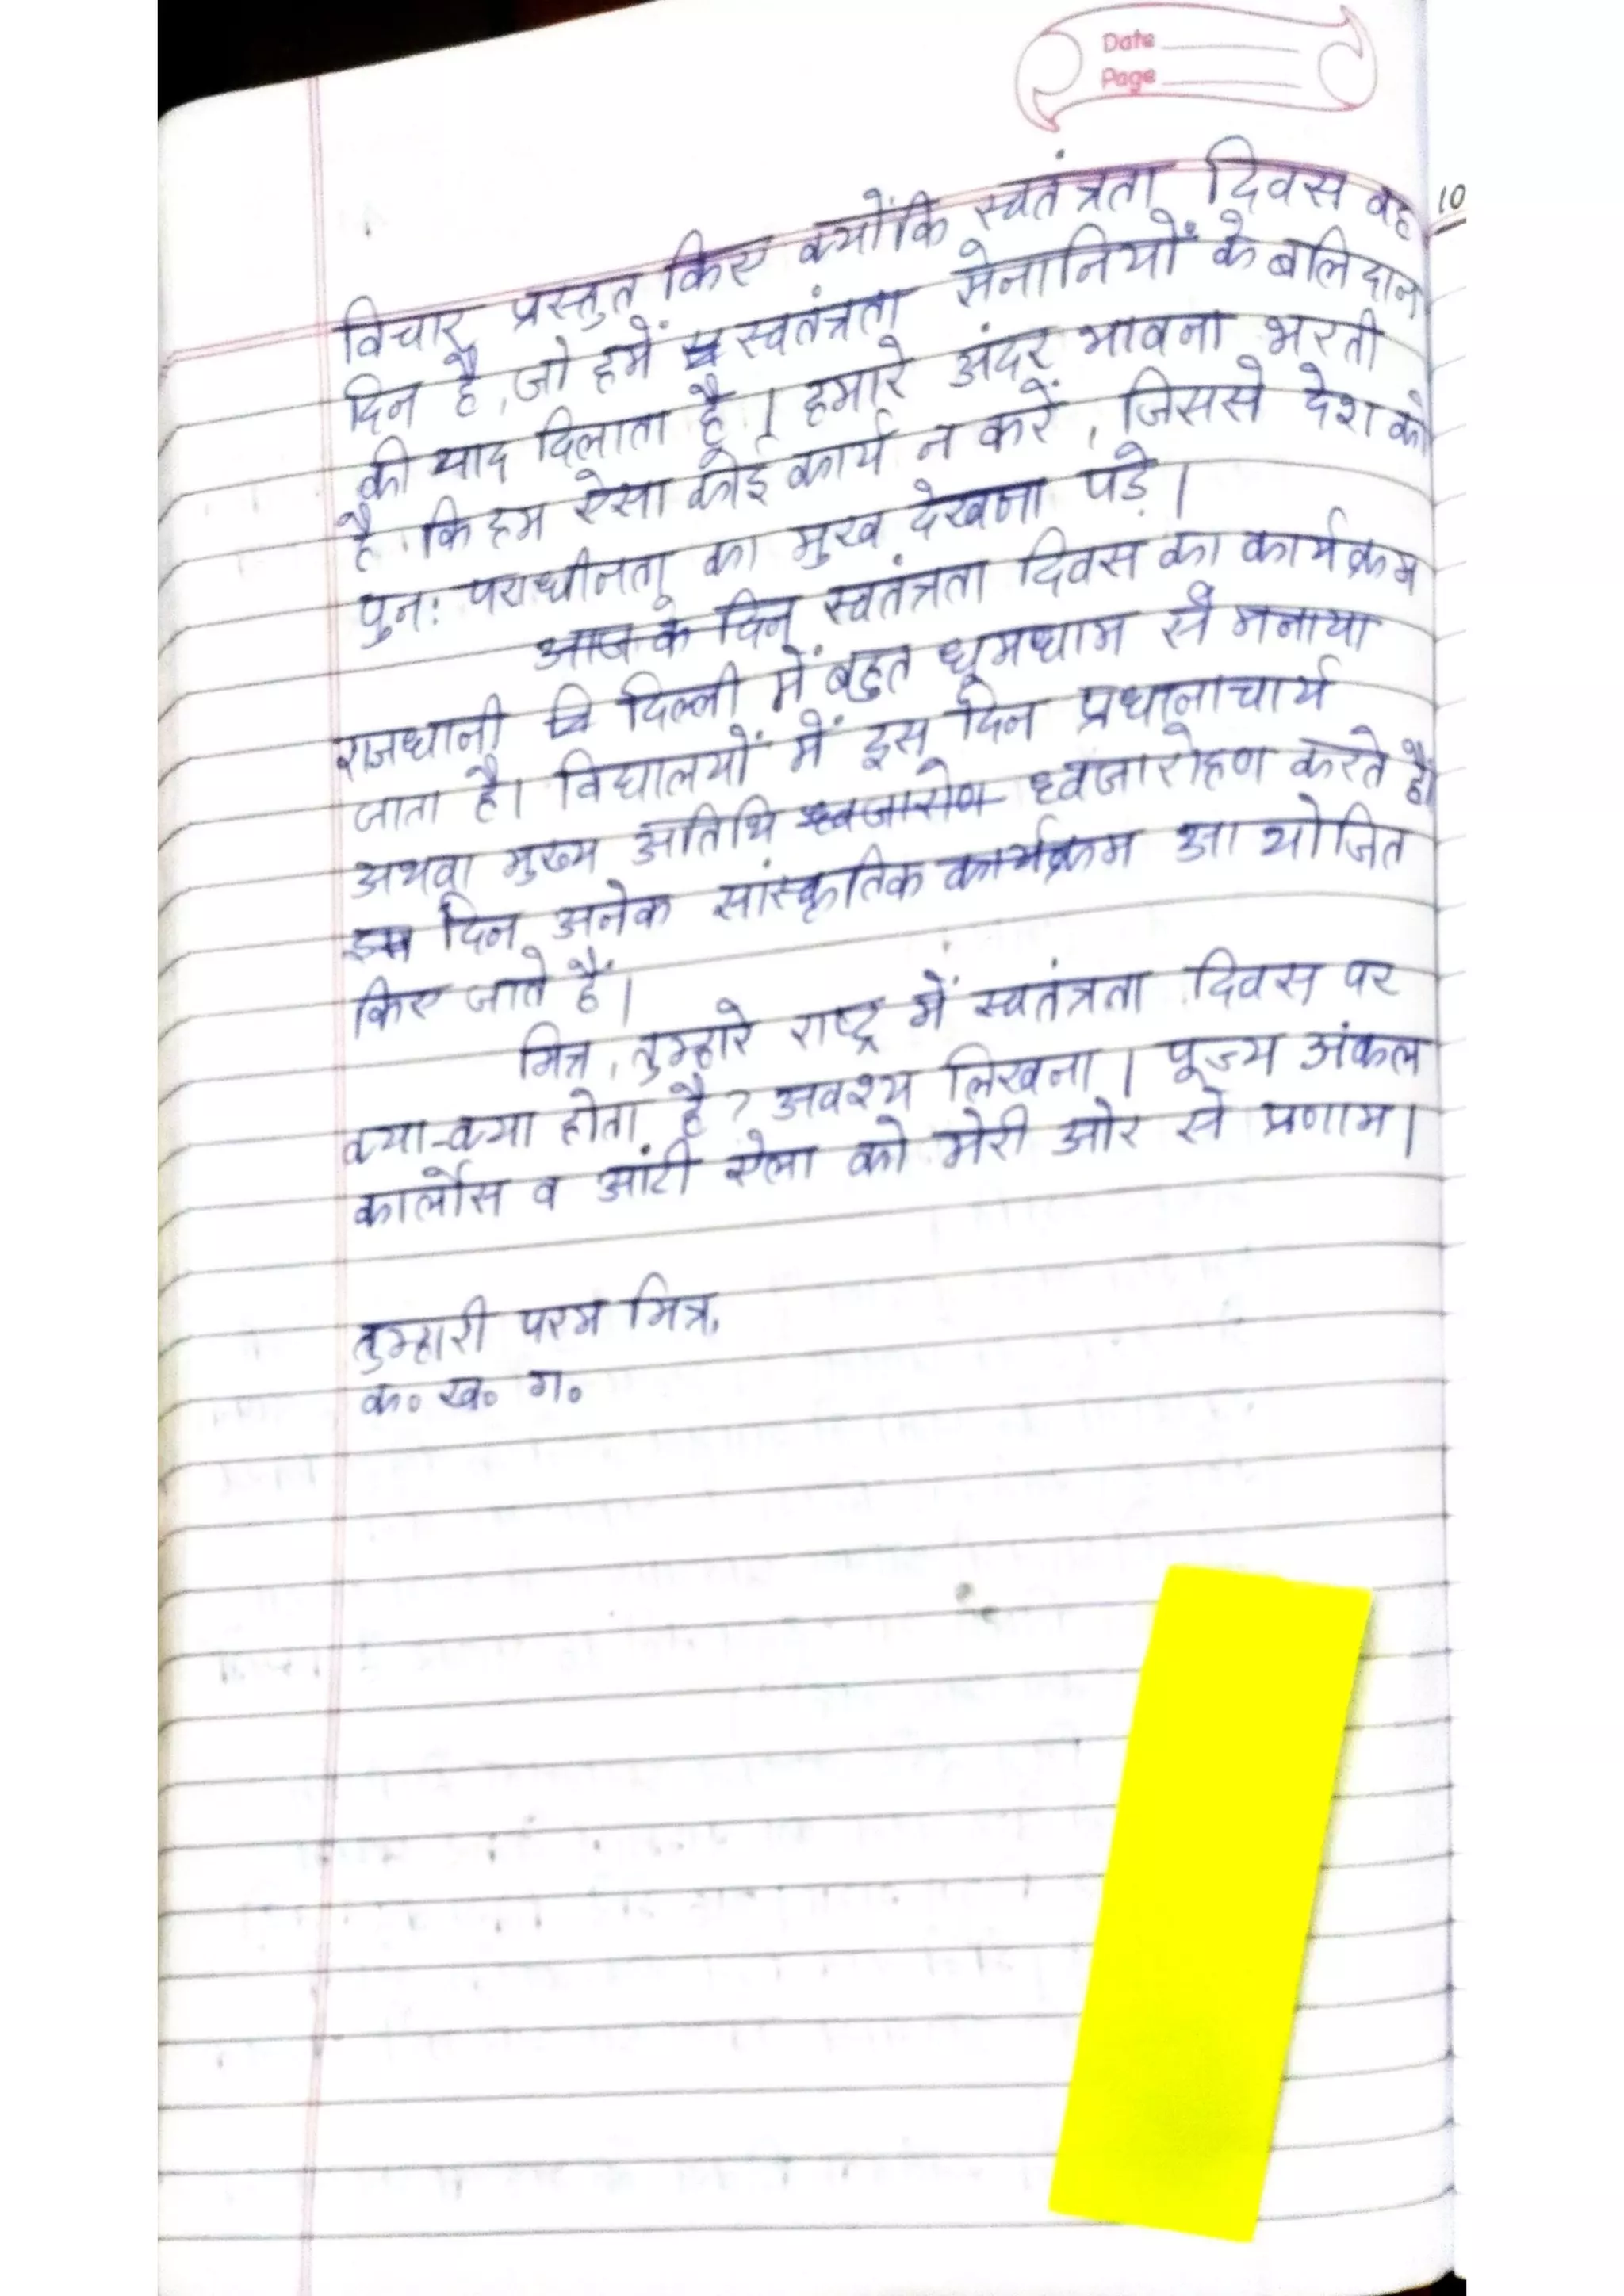 Date
Page
10
विचार प्रस्तुत किए क्योंकि स्वतंत्रता दिवस वह
दिन है, जो हमें स्वतंत्रता सेनानियों के बलिदान
की याद दिलाता है। हमारे अंदर भावना भरती
है, कि हम ऐसा कोई कार्य न करें, जिससे देश को
पुनः पराधीनता का मुख देखना पड़े।
आज के दिन स्वतंत्रता दिवस का कार्यक्रम
राजधानी दिल्ली में बहुत धूमधाम से मनाया
जाता है। विद्यालयों में इस दिन प्रधानाचार्य
अथवा मुख्य अतिथि ध्वजारोण ध्वजारोहण करते हैं।
इस दिन अनेक सांस्कृतिक कार्यक्रम आयोजित
किए जाते हैं।
मित्र, तुम्हारे राष्ट्र में स्वतंत्रता दिवस पर
क्या-क्या होता है? अवश्य लिखना। पूज्य अंकल
कार्लोस व आंटी ऐला को मेरी ओर से प्रणाम।
तुम्हारी परम मित्र,
क० ख० ग०